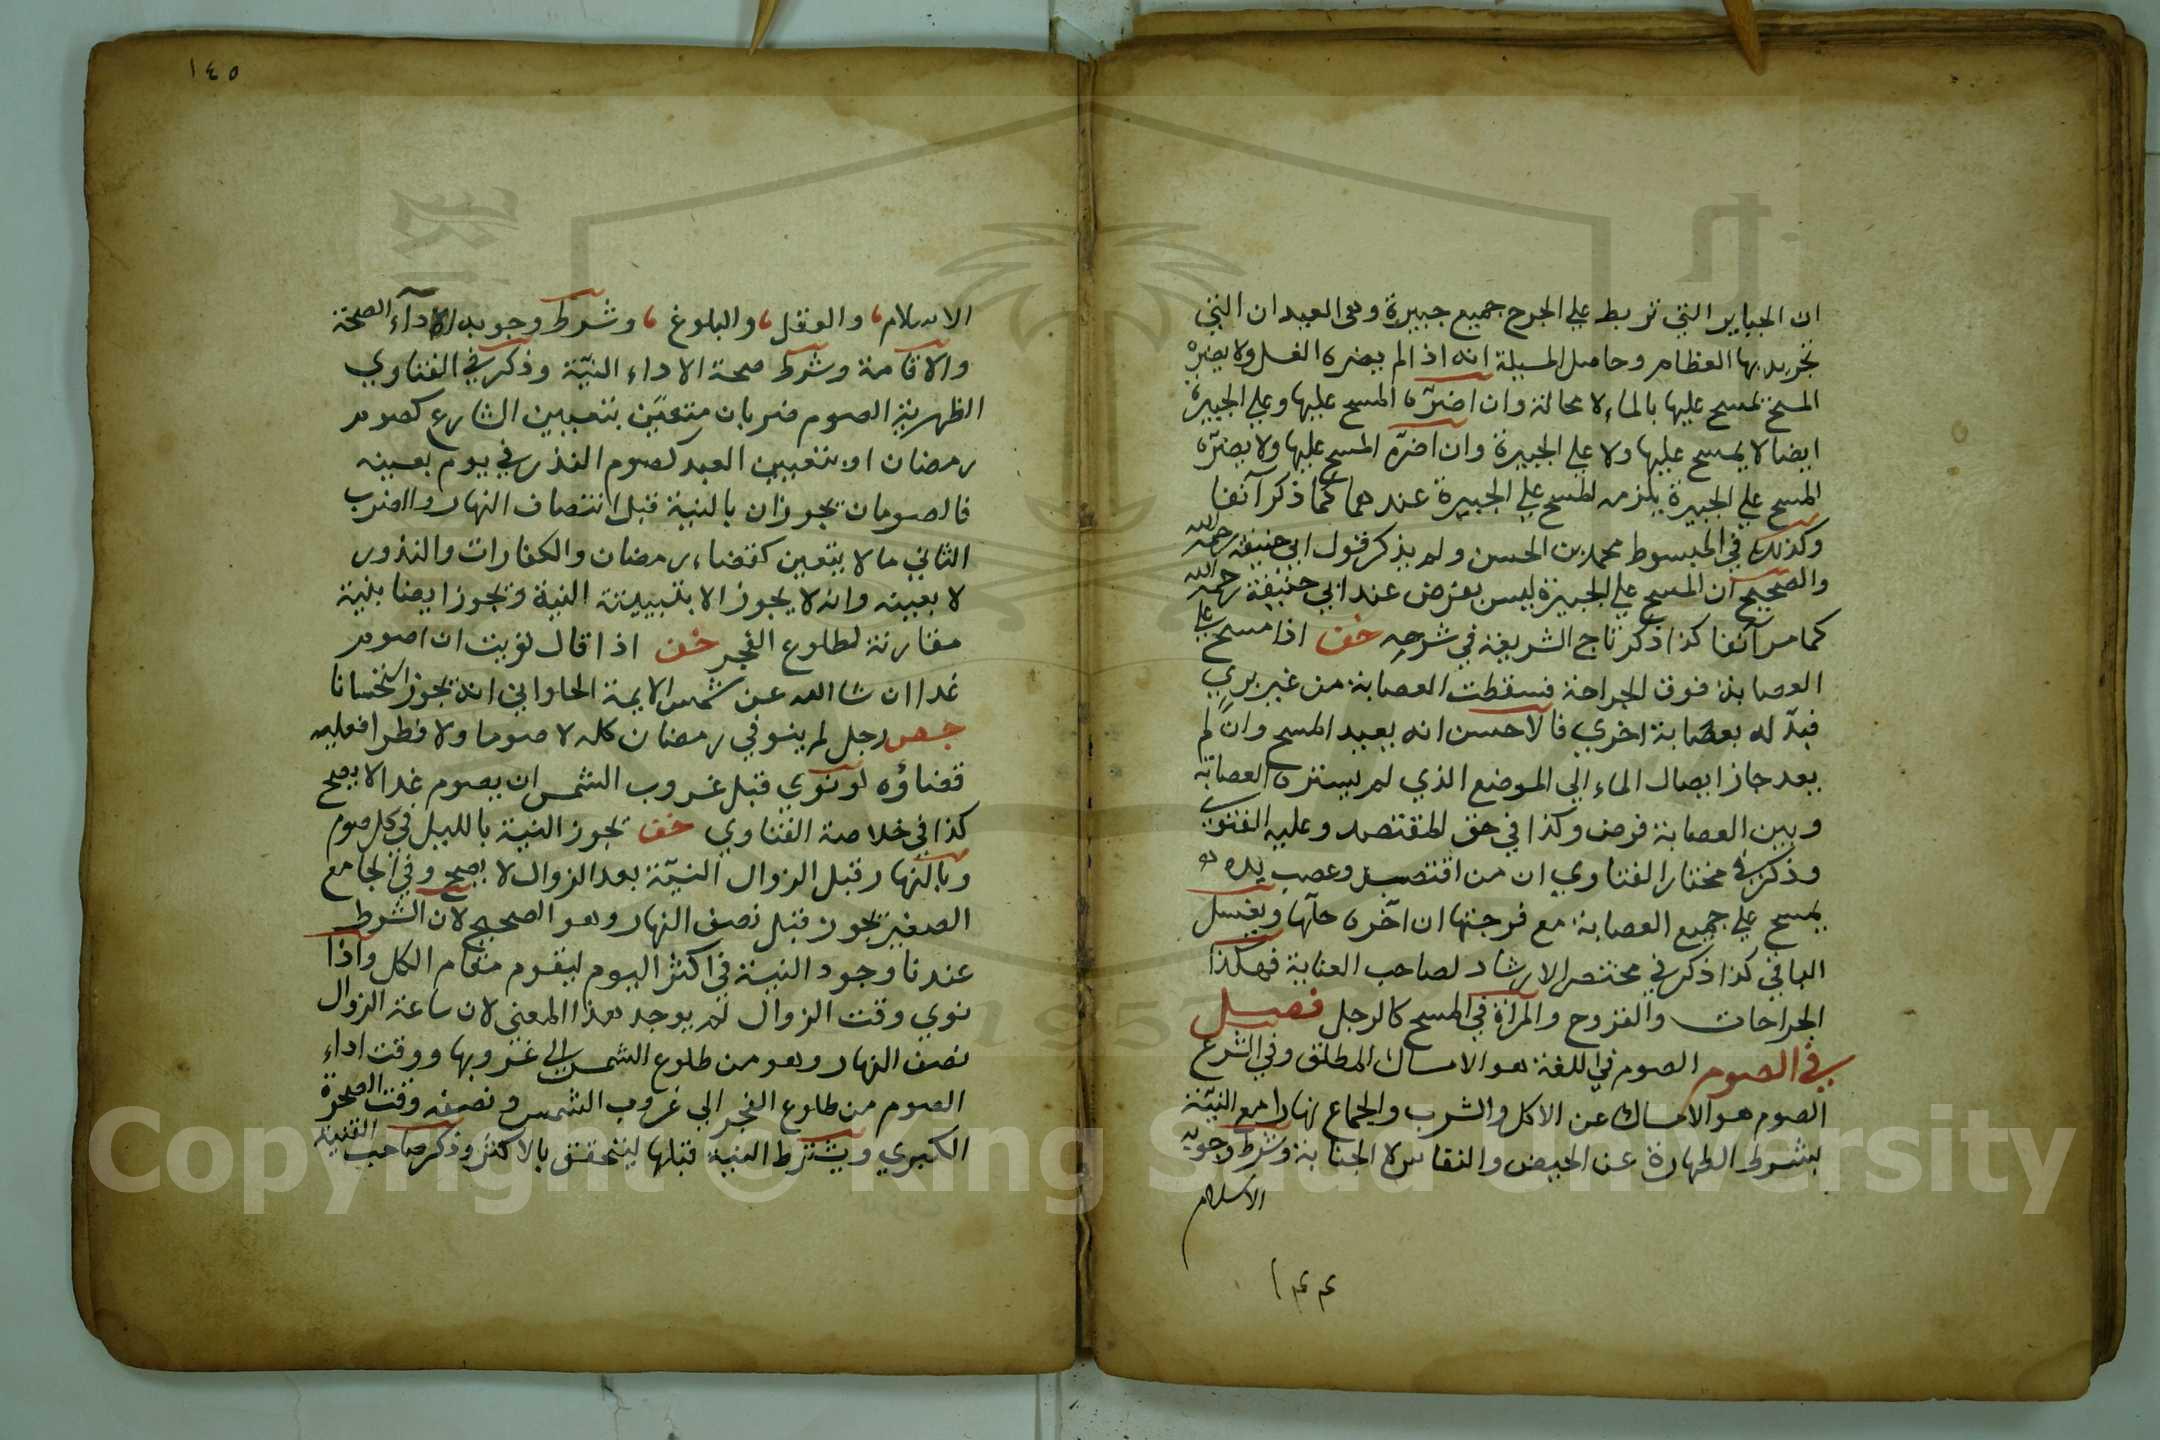 ان الجباير التي تربط علي الجرح جميع جبيرة وهي العيدان التي
تجربد بها العظام وحاصل المسيلة انه اذا لم يضره الغسل ولا يضره
المسح تمسح عليها بالماء لا محالة وان اضرّه المسح عليها وعلي الجبيرة
ايضا لا يمسح عليها ولا علي الجبيرة وان اضرّه المسح عليها ولا يضرّه
المسح علي الجبيرة يلزمه المسح علي الجبيرة عندهما كما ذكر آنفا
وكذلك في المبسوط محمد بن الحسن ولم يذكر قول ابي حنيفة رحمه الله
والصحيح ان المسح علي الجبيرة ليس بفرض عند ابي حنيفة رحمه الله
كما مر آنفا كذا ذكر تاج الشريعة في شرحه خف اذا مسح علي
العصابة فوق الجراحة فسقطت العصابة من غير بري
فبدّله بعصابة اخري فالاحسن انه يعيد المسح وان لم
يعد جاز ايصال الماء الي الموضع الذي لم يستره العصابة
وبين العصابة فرض وكذا في حق المقتصد وعليه الفتوي
وذكر في مختار الفتاوي ان من اقتصد وعصب يده
يمسح علي جميع العصابة مع فرجتها ان آخره حلّها ويغسل
الباقي كذا ذكر في مختصر الارشاد لصاحب العناية فهكذا
الجراحات والقروح والمرآة في المسح كالرجل فصل
في الصوم الصوم في اللغة هو الامساك المطلق وفي الشرع
الصوم هو الامساك عن الاكل والشرب والجماع نهارا مع النيّة
بشرط الطهارة عن الحيض والنفاس لا الجنابة وشرط وجوبه
الاسلام
١٤٤
١٤٥
الاسلام، والعقل، والبلوغ، وشرط وجوب الاداء الصحة
والاقامة وشرط صحة الاداء النيّة وذكر في الفتاوي
الظهرية الصوم ضربان متعيّن بتعيين الشارع كصوم
رمضان او بتعيين العبد كصوم النذر في يوم بعينه
فالصومان يجوزان بالنية قبل انتصاف النهار والضرب
الثاني ما لا يتعين كقضاء رمضان والكفارات والنذور
لا بعينه وانه لا يجوز الا بتبييتة النية وتجوز ايضا بنية
مقارنة لطلوع الفجر خف اذا قال نويت ان اصوم
غدا ان شا الله عن شمس الايمة الحلواني انه يجوز استحسانا
جص رجل لم ينو في رمضان كله لا صوما ولا فطرا فعليه
قضاؤه لو نوي قبل غروب الشمس ان يصوم غدا لا يصح
كذا في خلاصة الفتاوي خف تجوز النية بالليل في كل صوم
وبالنهار قبل الزوال النيّة بعد الزوال لا يصح وفي الجامع
الصغير يجوز قبل نصف النهار وهو الصحيح لان الشرط
عندنا وجود النية في اكثر اليوم ليقوم مقام الكل واذا
نوي وقت الزوال لم يوجد هذا المعني لان ساعة الزوال
نصف النهار وهو من طلوع الشمس الي غروبها ووقت اداء
الصوم من طلوع الفجر الي غروب الشمس ونصفه وقت الضحوة
الكبري ويشترط النية قبلها ليتحقق بالاكثر وذكر صاحب القنية
1957
Copyright © King Saud University